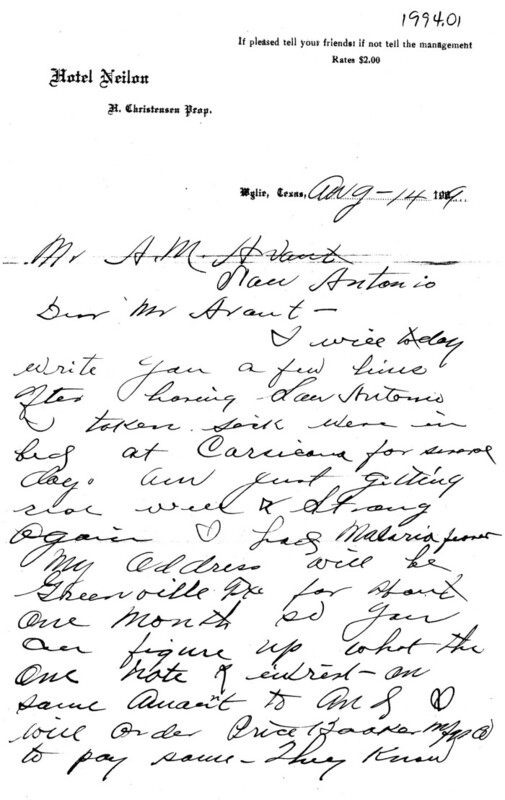 1994.01
If pleased tell your friends: if not tell the management
Rates $2.00
Hotel Neilon
H. Christensen Prop.
Wylie, Texas, Aug-14 1909
Mr A. M. Avant
San Antonio
Dear Mr Avant-
I will today
write you a few lines
after Antonio
I taken sick were in
bed at Corsicana for
days am just gitting
well & strong
again I had Malaria
My Address will be
Greenville Tx for about
One Month so you
can figure up what the
One Note & intrest - on
same to and I
will order Price Booker Mfg Co
to pay same - They Know